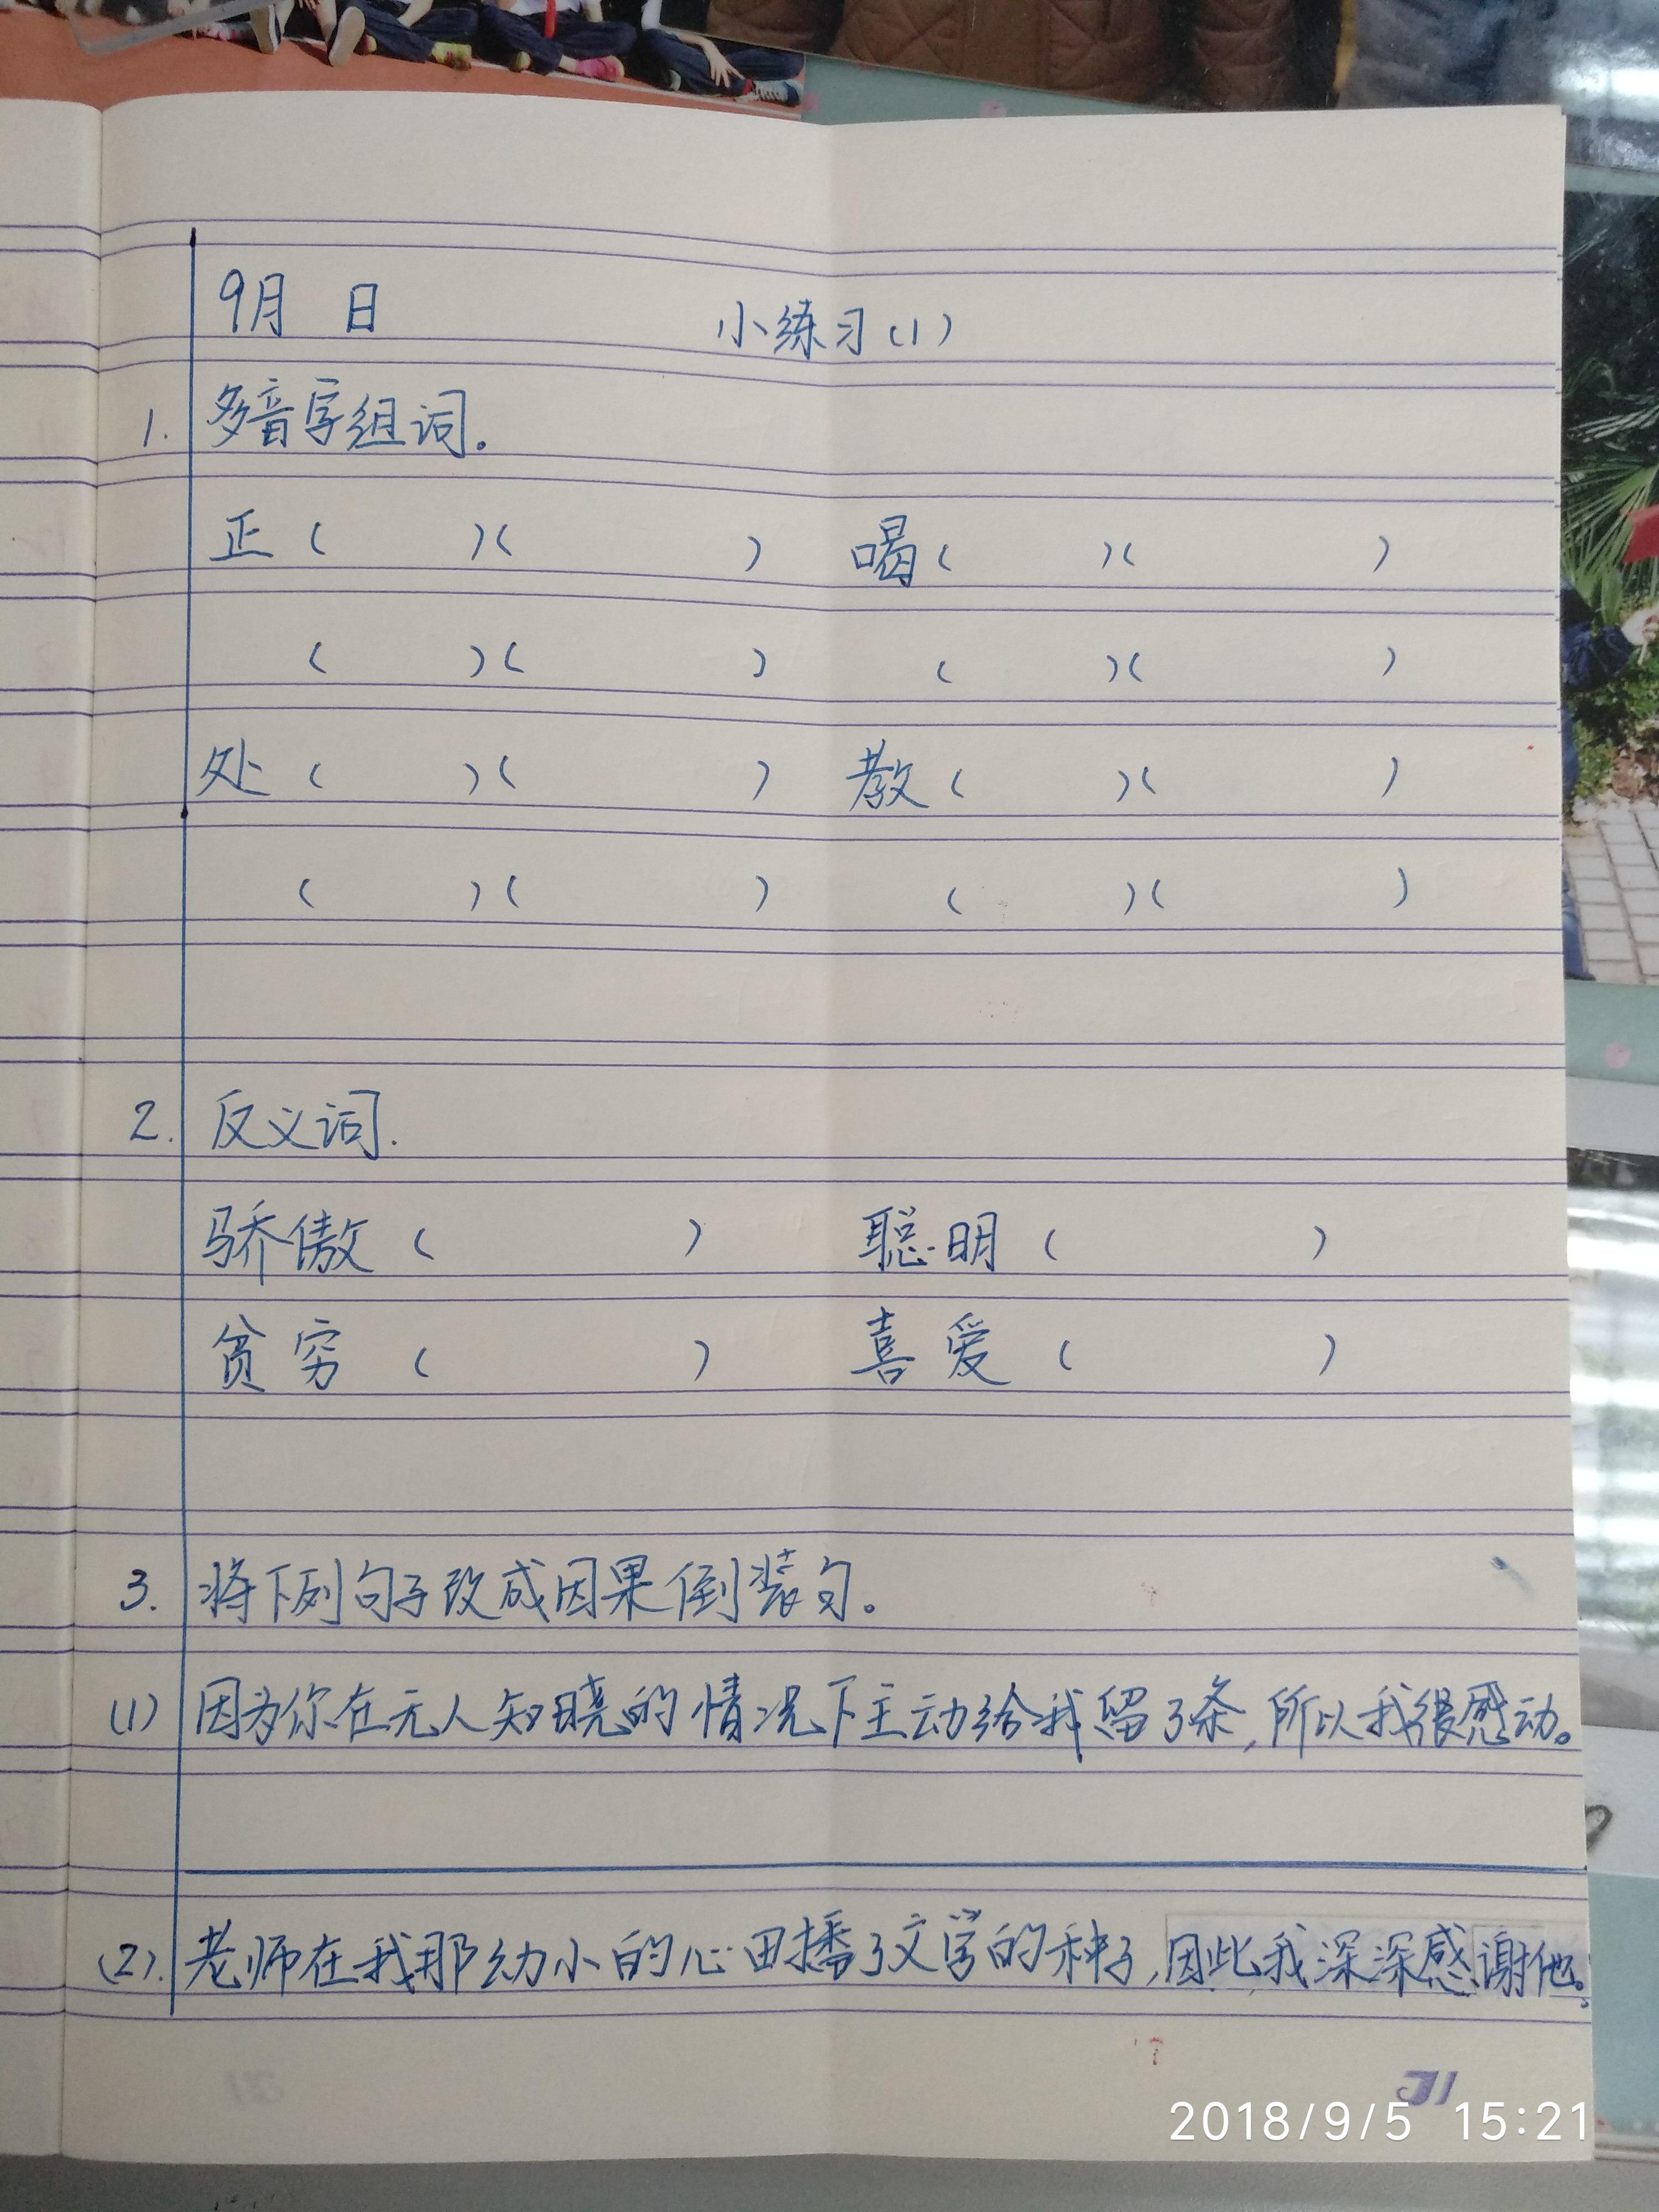 9月 日
小练习(1)
1. 多音字组词。
正( )( ) 喝( )( )
( )( ) ( )( )
处( )( ) 教( )( )
( )( ) ( )( )
2. 反义词.
骄傲( ) 聪明( )
贫穷( ) 喜爱( )
3. 将下列句子改成因果倒装句。
(1) 因为你在无人知晓的情况下主动给我留了条,所以我很感动。
(2). 老师在我那幼小的心田播了文学的种子,因此我深深感谢他。
2018/9/5 15:21